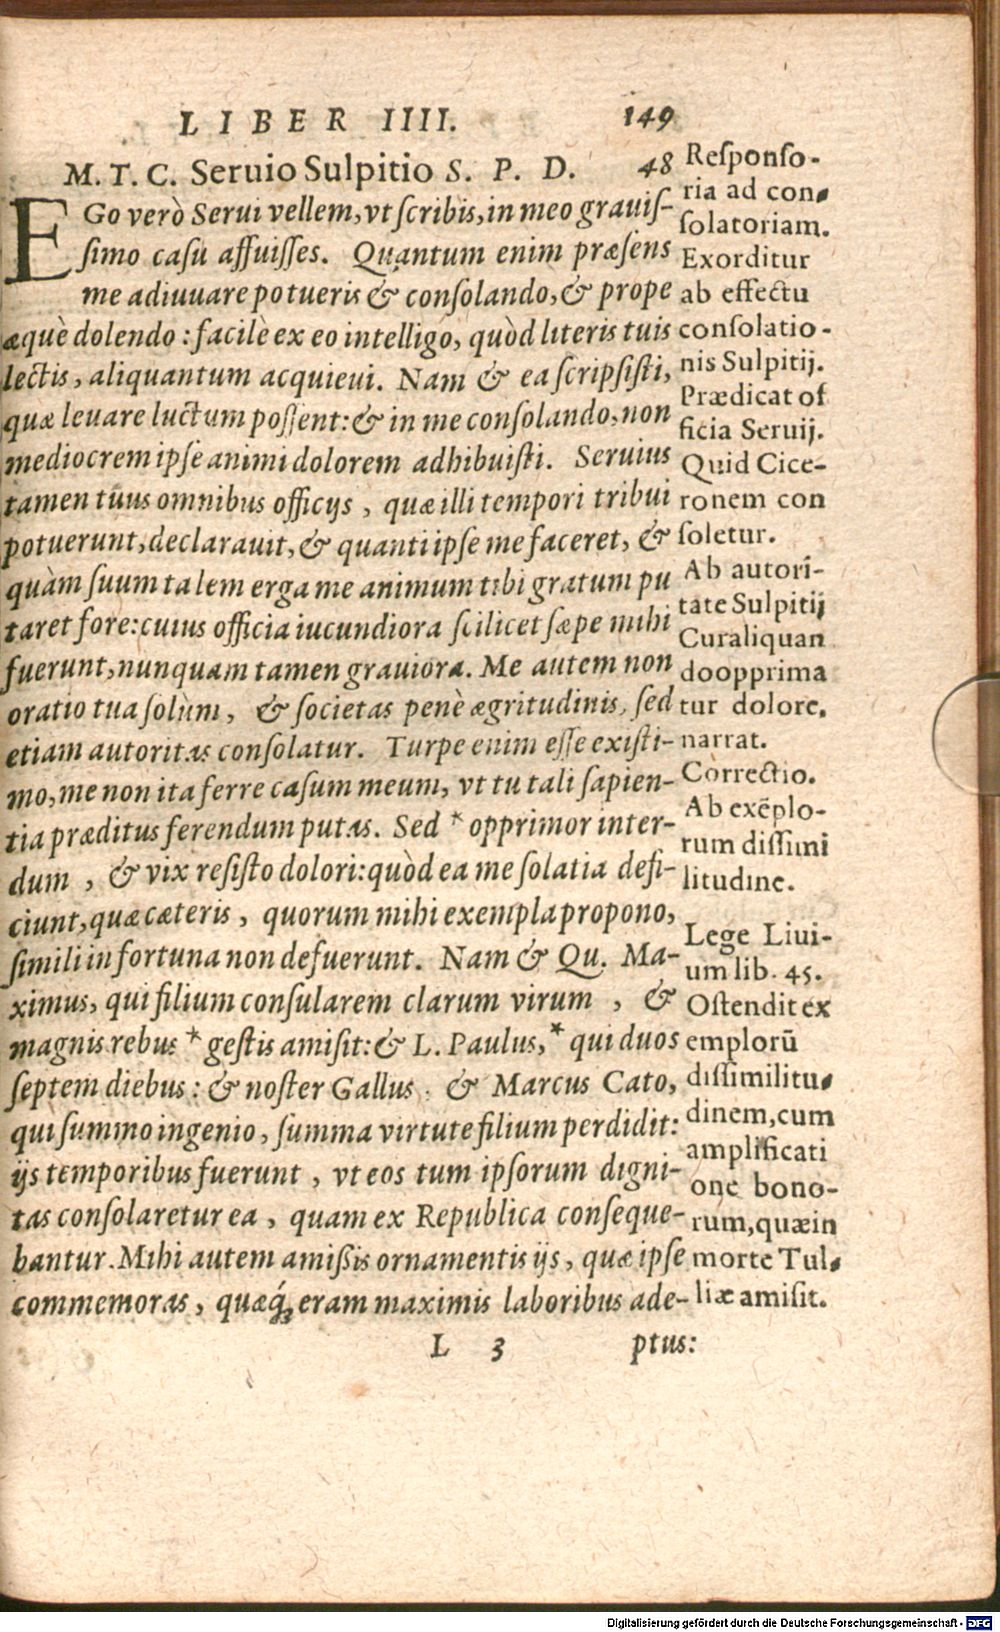 LIBER IIII. 149
M. T. C. Seruio Sulpitio S. P. D. 48
EGo verò Serui vellem, vt ſcribis, in meo grauiſ-
ſimo caſu affuiſſes. Quantum enim præſens
me adiuuare potueris & conſolando, & prope
æquè dolendo: facilè ex eo intelligo, quòd literis tuis
lectis, aliquantum acquieui. Nam & ea ſcripſiſti,
quæ leuare luctum poſſent: & in me conſolando, non
mediocrem ipſe animi dolorem adhibuiſti. Seruius
tamen tuus omnibus officijs, quæ illi tempori tribui
potuerunt, declarauit, & quanti ipſe me faceret, &
quàm ſuum talem erga me animum tibi gratum pu
taret fore: cuius officia iucundiora ſcilicet ſæpe mihi
fuerunt, nunquam tamen grauiora. Me autem non
oratio tua ſolùm, & ſocietas penè ægritudinis, ſed
etiam autoritas conſolatur. Turpe enim eſſe exiſti-
mo, me non ita ferre caſum meum, vt tu tali ſapien-
tia præditus ferendum putas. Sed * opprimor inter-
dum, & vix reſiſto dolori: quòd ea me ſolatia defi-
ciunt, quæ cæteris, quorum mihi exempla propono,
ſimili in fortuna non defuerunt. Nam & Qu. Ma-
ximus, qui filium conſularem clarum virum, &
magnis rebus * geſtis amiſit: & L. Paulus, * qui duos
ſeptem diebus: & noſter Gallus, & Marcus Cato,
qui ſummo ingenio, ſumma virtute filium perdidit:
ijs temporibus fuerunt, vt eos tum ipſorum digni-
tas conſolaretur ea, quam ex Republica conſeque-
bantur. Mihi autem amiſsis ornamentis ijs, quæ ipſe
commemoras, quæq́; eram maximis laboribus ade-
L 3 ptus:
Reſponſo-
ria ad con-
ſolatoriam.
Exorditur
ab effectu
conſolatio-
nis Sulpitij.
Prædicat of
ficia Seruij.
Quid Cice-
ronem con
ſoletur.
Ab autori-
tate Sulpitij
Cur aliquan
do opprima
tur dolore,
narrat.
Correctio.
Ab exẽplo-
rum diſſimi
litudine.
Lege Liui-
um lib. 45.
Oſtendit ex
emplorū
diſſimilitu-
dinem, cum
amplificati
one bono-
rum, quæ in
morte Tul-
liæ amiſit.
Digitalisierung gefördert durch die Deutsche Forschungsgemeinschaft - DFG